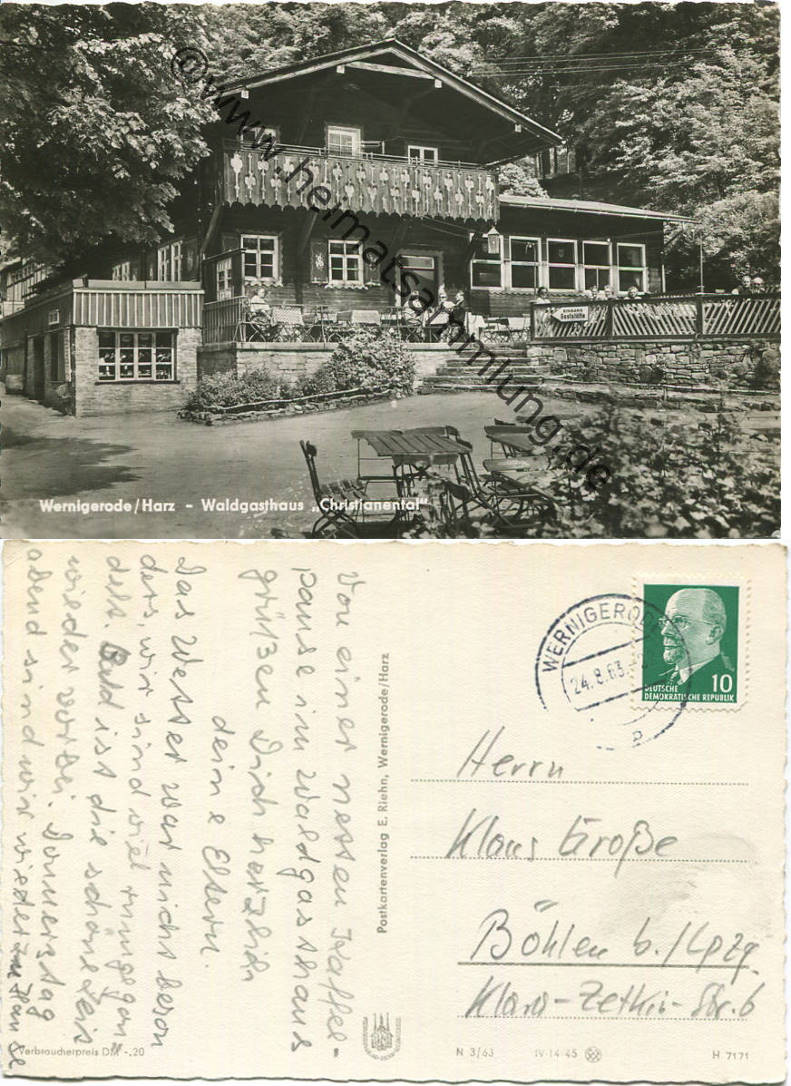 © www.heimatsammlung.de
EINGANG
Gaststätte
Wernigerode/Harz - Waldgasthaus „Christianental"
Von einer netten Kaffee-
pause im Waldgasthaus
grüßen Dich herzlich
deine Eltern.
Das Wetter war nicht beson
ders, wir sind viel rumgegan=
delt. Bald ist die schöne Zeit
wieder vorbei. Donnerstag
abend sind wir wieder zu Hause
Verbraucherpreis DM -.20
Postkartenverlag E. Riehn, Wernigerode/Harz
WERNIGERODE
24.8.63
10
DEUTSCHE
DEMOKRATISCHE REPUBLIK
Herrn
Klaus Große
Böhlen b./Lpzg.
Klara-Zetkin-Str. 6
N 3/63 IV-14-45 H 7171